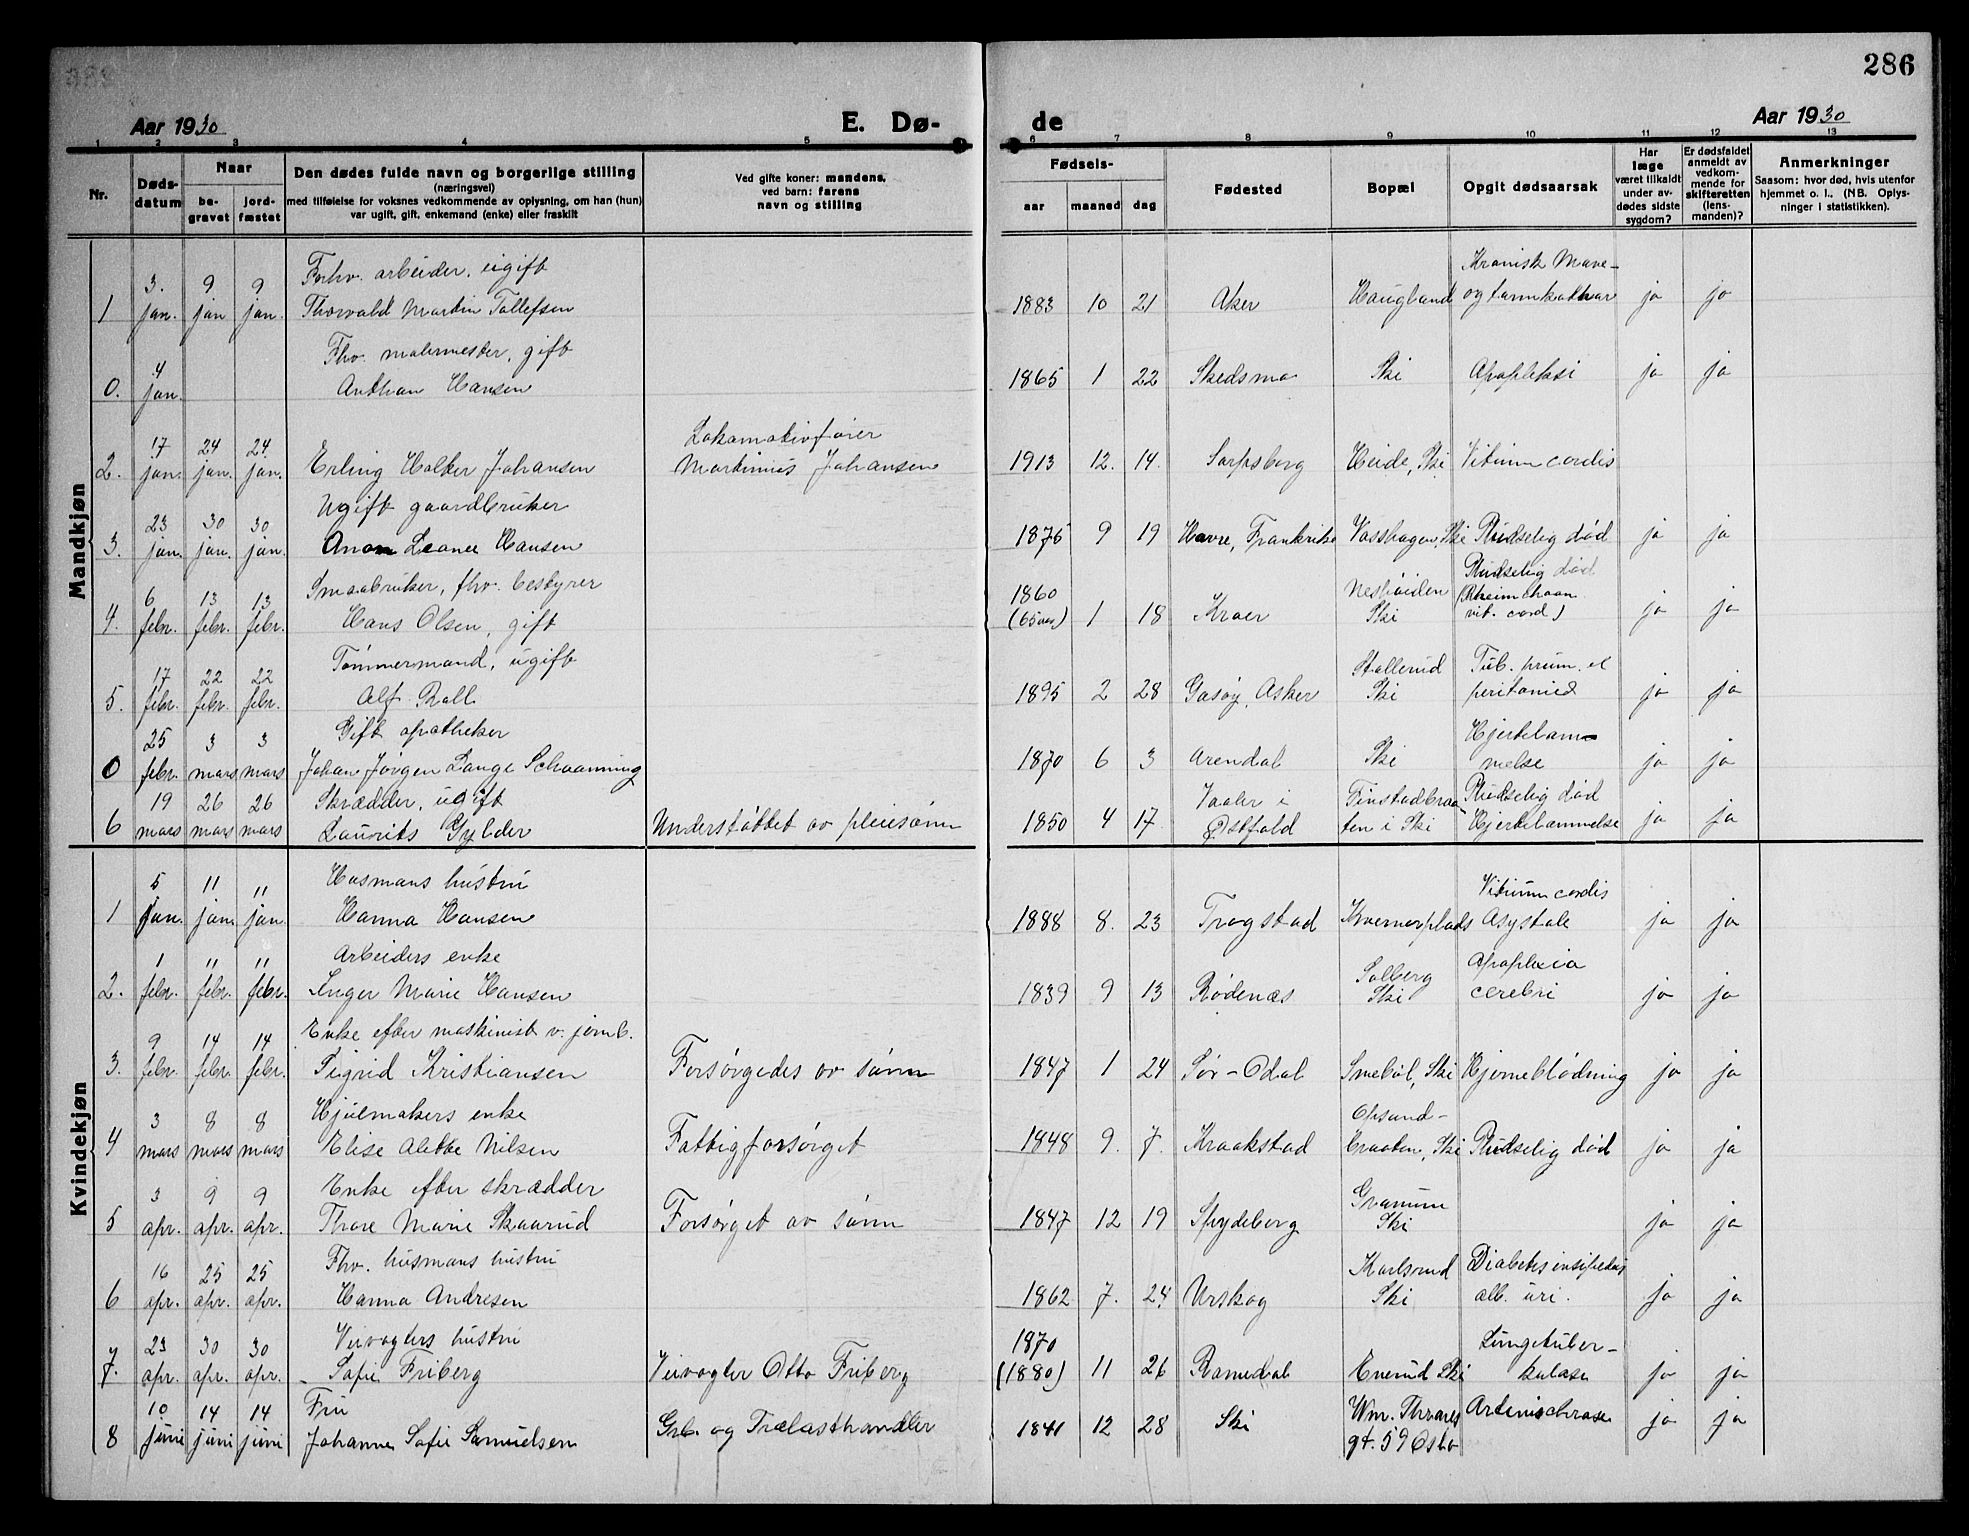 286
Aar 1930
E. Dø-
de
Aar 1930
1 2 3 4 5 6 7 8 9 10 11 12 13
Nr.
Døds-
datum
Naar
be-
gravet
jord-
fæstet
Den dødes fulde navn og borgerlige stilling
(næringsvei)
med tilføielse for voksnes vedkommende av oplysning, om han (hun)
var ugift, gift, enkemand (enke) eller fraskilt
Ved gifte koner: mandens,
ved barn: farens
navn og stilling
Fødsels-
aar maaned dag
Fødested
Bopæl
Opgit dødsaarsak
Har
læge
været tilkaldt
under av-
dødes sidste
sygdom?
Er dødsfaldet
anmeldt av
vedkom-
mende for
skifteretten
(lens-
manden)?
Anmerkninger
Saasom: hvor død, hvis utenfor
hjemmet o. l., (NB. Oplys-
ninger i statistikken).
Mandkjøn
3. 9 9 Forhv. arbeider, ugift Kronisk Mave-
1 jan. jan jan. Thorvald Martin Tollefsen 1883 10 21 Aker Haugland og tarmkathar ja ja
4 Fhv. malermester, gift
0. jan. Anthon Hansen 1865 1 22 Skedsmo Ski Apopleksi ja ja
17 24 24. Lokomotivfører
2. jan. jan. jan. Erling Holker Johansen Martinius Johansen 1913 12. 14. Sarpsborg Heide, Ski Vitium cordis ja ja
23 30 30 Ugift gaardbruker
3. jan. jan. jan. Anon Leonce Hansen 1875 9 19 Havre, Frankrike Vasshagen, Ski Pludselig død ja ja
6 13 13 Smaabruker, fhv. bestyrer 1860 Neshøiden Pludselig død
4. febr. febr. febr. Hans Olsen, gift (65 aar) 1 18 Kroer Ski vit. cord) ja ja
17 22 22 Tømmermand, ugift Stallerud Tub. prum. et
5. febr. febr. febr. Alf. Roll 1895 2 28 Gåsøy, Asker Ski ja ja
25 3 3 Gift apotheker Hjertelam-
0 febr. mars mars Johan Jörgen Lange Schaanning 1870 6 3 Arendal Ski melse ja ja
19 26 26 Skrædder, ugift Vaaler i Finstadbraa- Pludselig død
6 mars mars mars Laurits Gylder Understøttet av pleiesønn 1850 4 17 Østfold ten i Ski Hjertelammelse ja ja
Kvindekjøn
5 11 11 Husmans hustru Vitium cordis
1 jan. jan. jan. Hanna Hansen 1888 8. 23 Trøgstad Kvernerplads Asystole ja ja
1 11 11 Arbeiders enke Solberg Apoplexia
2. febr. febr. febr. Inger Marie Hansen 1839 9 13 Rødenæs Ski cerebri ja ja
9 14 14 Enke efter maskinist v. jernb.
3. febr. febr. febr. Sigrid Kristiansen Forsørgedes av sønn 1847 1 24 Sør-Odal Smebøl, Ski Hjerneblødning ja ja
3 8 8 Hjulmakers enke Opsand-
4 mars mars mars Elise Alette Nilsen Fattigforsørget 1848 9. 7. Kraakstad braaten, Ski Pludselig død ja ja
3 9 9 Enke efter skrædder Granum
5 apr. apr. apr. Thore Marie Skaarud Forsørget av sønn 1847 12 19 Spydeberg Ski ja ja
16 25 25 Fhv. husmans hustru Karlsrud Diabetes insipidus
6 apr. apr. apr. Hanna Andresen 1862 7. 24 Urskog Ski alb. uri. ja ja
23 30 30 Veivogters hustru 1870 Lungetuber-
7. apr. apr. apr. Sofie Friberg Veivogter Otto Friberg (1880) 11 26 Romedal Enerud Ski kulose ja ja
10 14 14 Fru Wm. Thranes
8 juni juni juni Johanne Sofie Samuelsen Grb. og Trælasthandler 1841 12 28 Ski gt. 59 Oslo ja ja